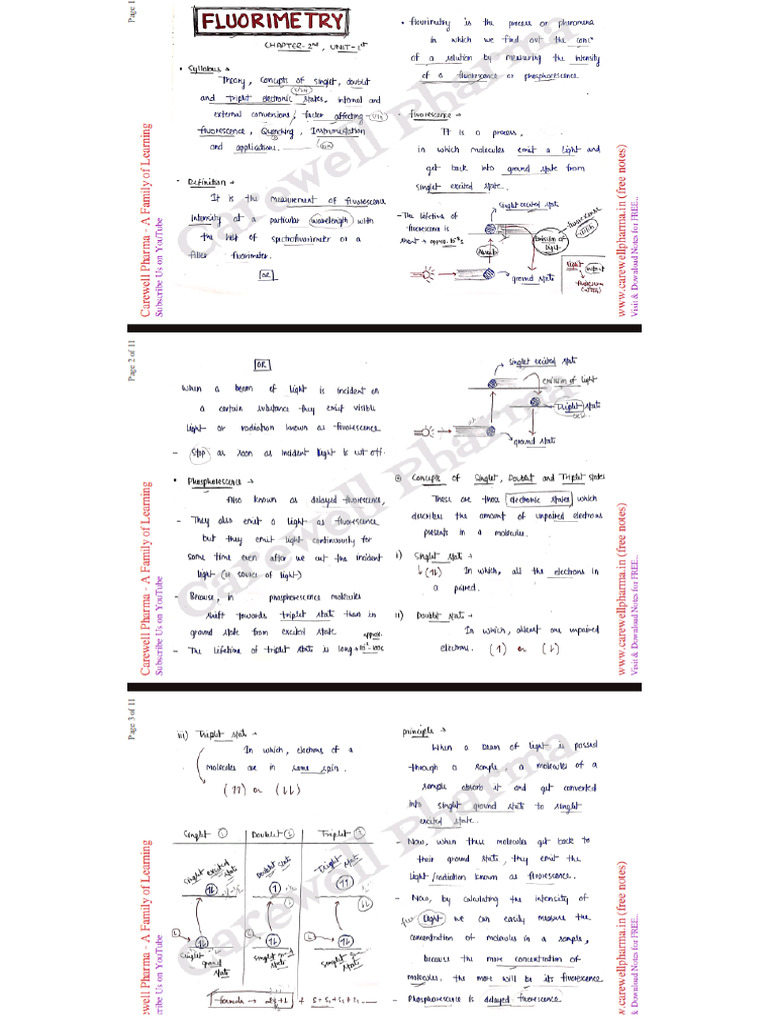 Page 1
FLUORIMETRY
CHAPTER-2nd, UNIT-1st
• Syllabus →
Theory, Concepts of singlet, doublet
and Triplet electronic states, internal and
external conversions, factor affecting
fluorescence, Quenching, Instrumentation
and applications.
• Definition →
It is the measurement of fluorescence
intensity at a particular wavelength with
the help of spectrofluorimeter or a
filter fluorimeter.
OR
• fluorimetry is the process or phenomena
in which we find out the conc
of a solution by measuring the intensity
of a fluorescence or phosphorescence.
• Fluorescence →
It is a process,
in which molecules emit a light and
get back into ground state from
singlet excited state.
- The lifetime of
fluorescence is
short → approx. 10-8s
Singlet excited state
fluorescence
emission of
light
ground state
Carewell Pharma - A Family of Learning
Subscribe Us on YouTube
www.carewellpharma.in (free notes)
Visit & Download Notes for FREE...
Carewell Pharma
Page 2 of 11
OR
When a beam of light is incident on
a certain substance they emit visible
light or radiation known as fluorescence
- Stop as soon as incident light is cut off.
• Phosphorescence →
Also known as delayed fluorescence,
- They also emit a light as fluorescence
but they emit light continuously for
some time even after we cut the incident
light (or source of light)
- Because, in phosphorescence molecules
shift towards triplet state than in
ground state from excited state.
approx.
- The lifetime of triplet state is long →
Singlet excited state
emission of light
Triplet state
ground state
Concepts of Singlet, Doublet and Triplet states
These are those electronic states which
describes the amount of unpaired electrons
presents in a molecules.
i) Singlet state →
(↑↓) In which, all the electrons in
a paired.
ii) Doublet state →
In which, atleast one unpaired
electrons. (↑) or (↓)
Carewell Pharma - A Family of Learning
Subscribe Us on YouTube
www.carewellpharma.in (free notes)
Visit & Download Notes for FREE...
Carewell Pharma
Page 3 of 11
iii) Triplet state →
In which, electrons of a
molecules are in same spin.
(↑↑) or (↓↓)
Singlet 1 Doublet 2 Triplet 3
singlet excited state
Doublet state
Triplet state
singlet ground state
formula → 2S+1
principle →
When a beam of light is passed
through a sample, a molecules of a
sample absorb it and get converted
into singlet ground state to singlet
excited state.
- Now, when these molecules get back to
their ground state, they emit the
light/radiation known as fluorescence.
- Now, by calculating the intensity of
light we can easily measure the
concentration of molecules in a sample,
because the more concentration of
molecules, the more will be its fluorescence
- Phosphorescence is delayed fluorescence.
ewell Pharma - A Family of Learning
cribe Us on YouTube
v.carewellpharma.in (free notes)
& Download Notes for FREE...
Carewell Pharma